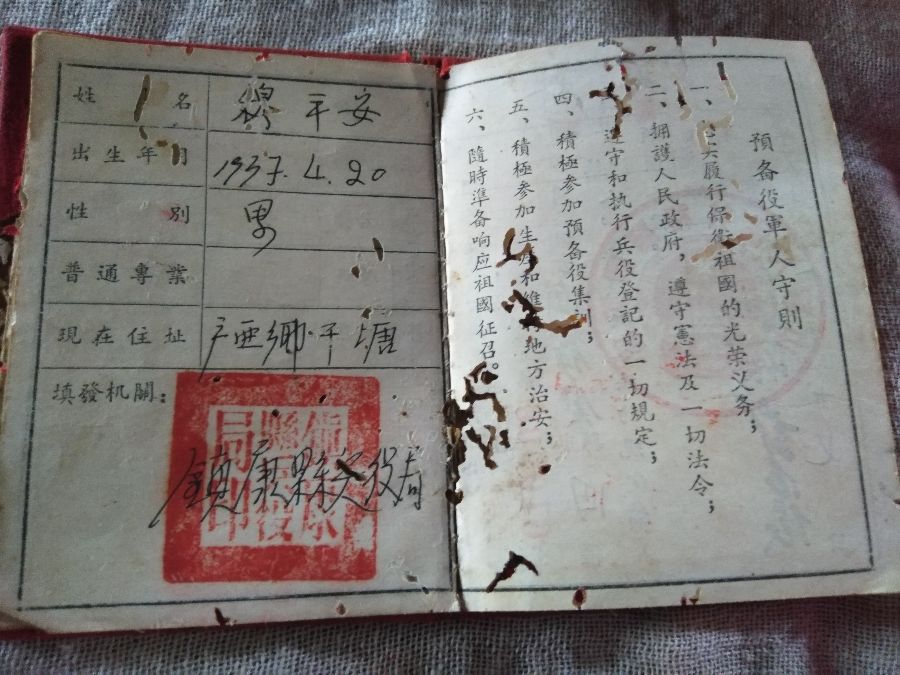 姓 名 平安
出生年月 1937.4.20
性 別 男
普通專業
現在住址 户西鄉·平塘
填發机關：
鎮康縣兵役局
鎮康縣兵役局印
預备役軍人守則
一、履行保衛祖國的光荣义务；
二、擁護人民政府，遵守憲法及一切法令；
遵守和执行兵役登記的一切規定；
四、積極参加預备役集訓；
五、積極参加生和維地方治安；
六、隨時準备响应祖國征召。